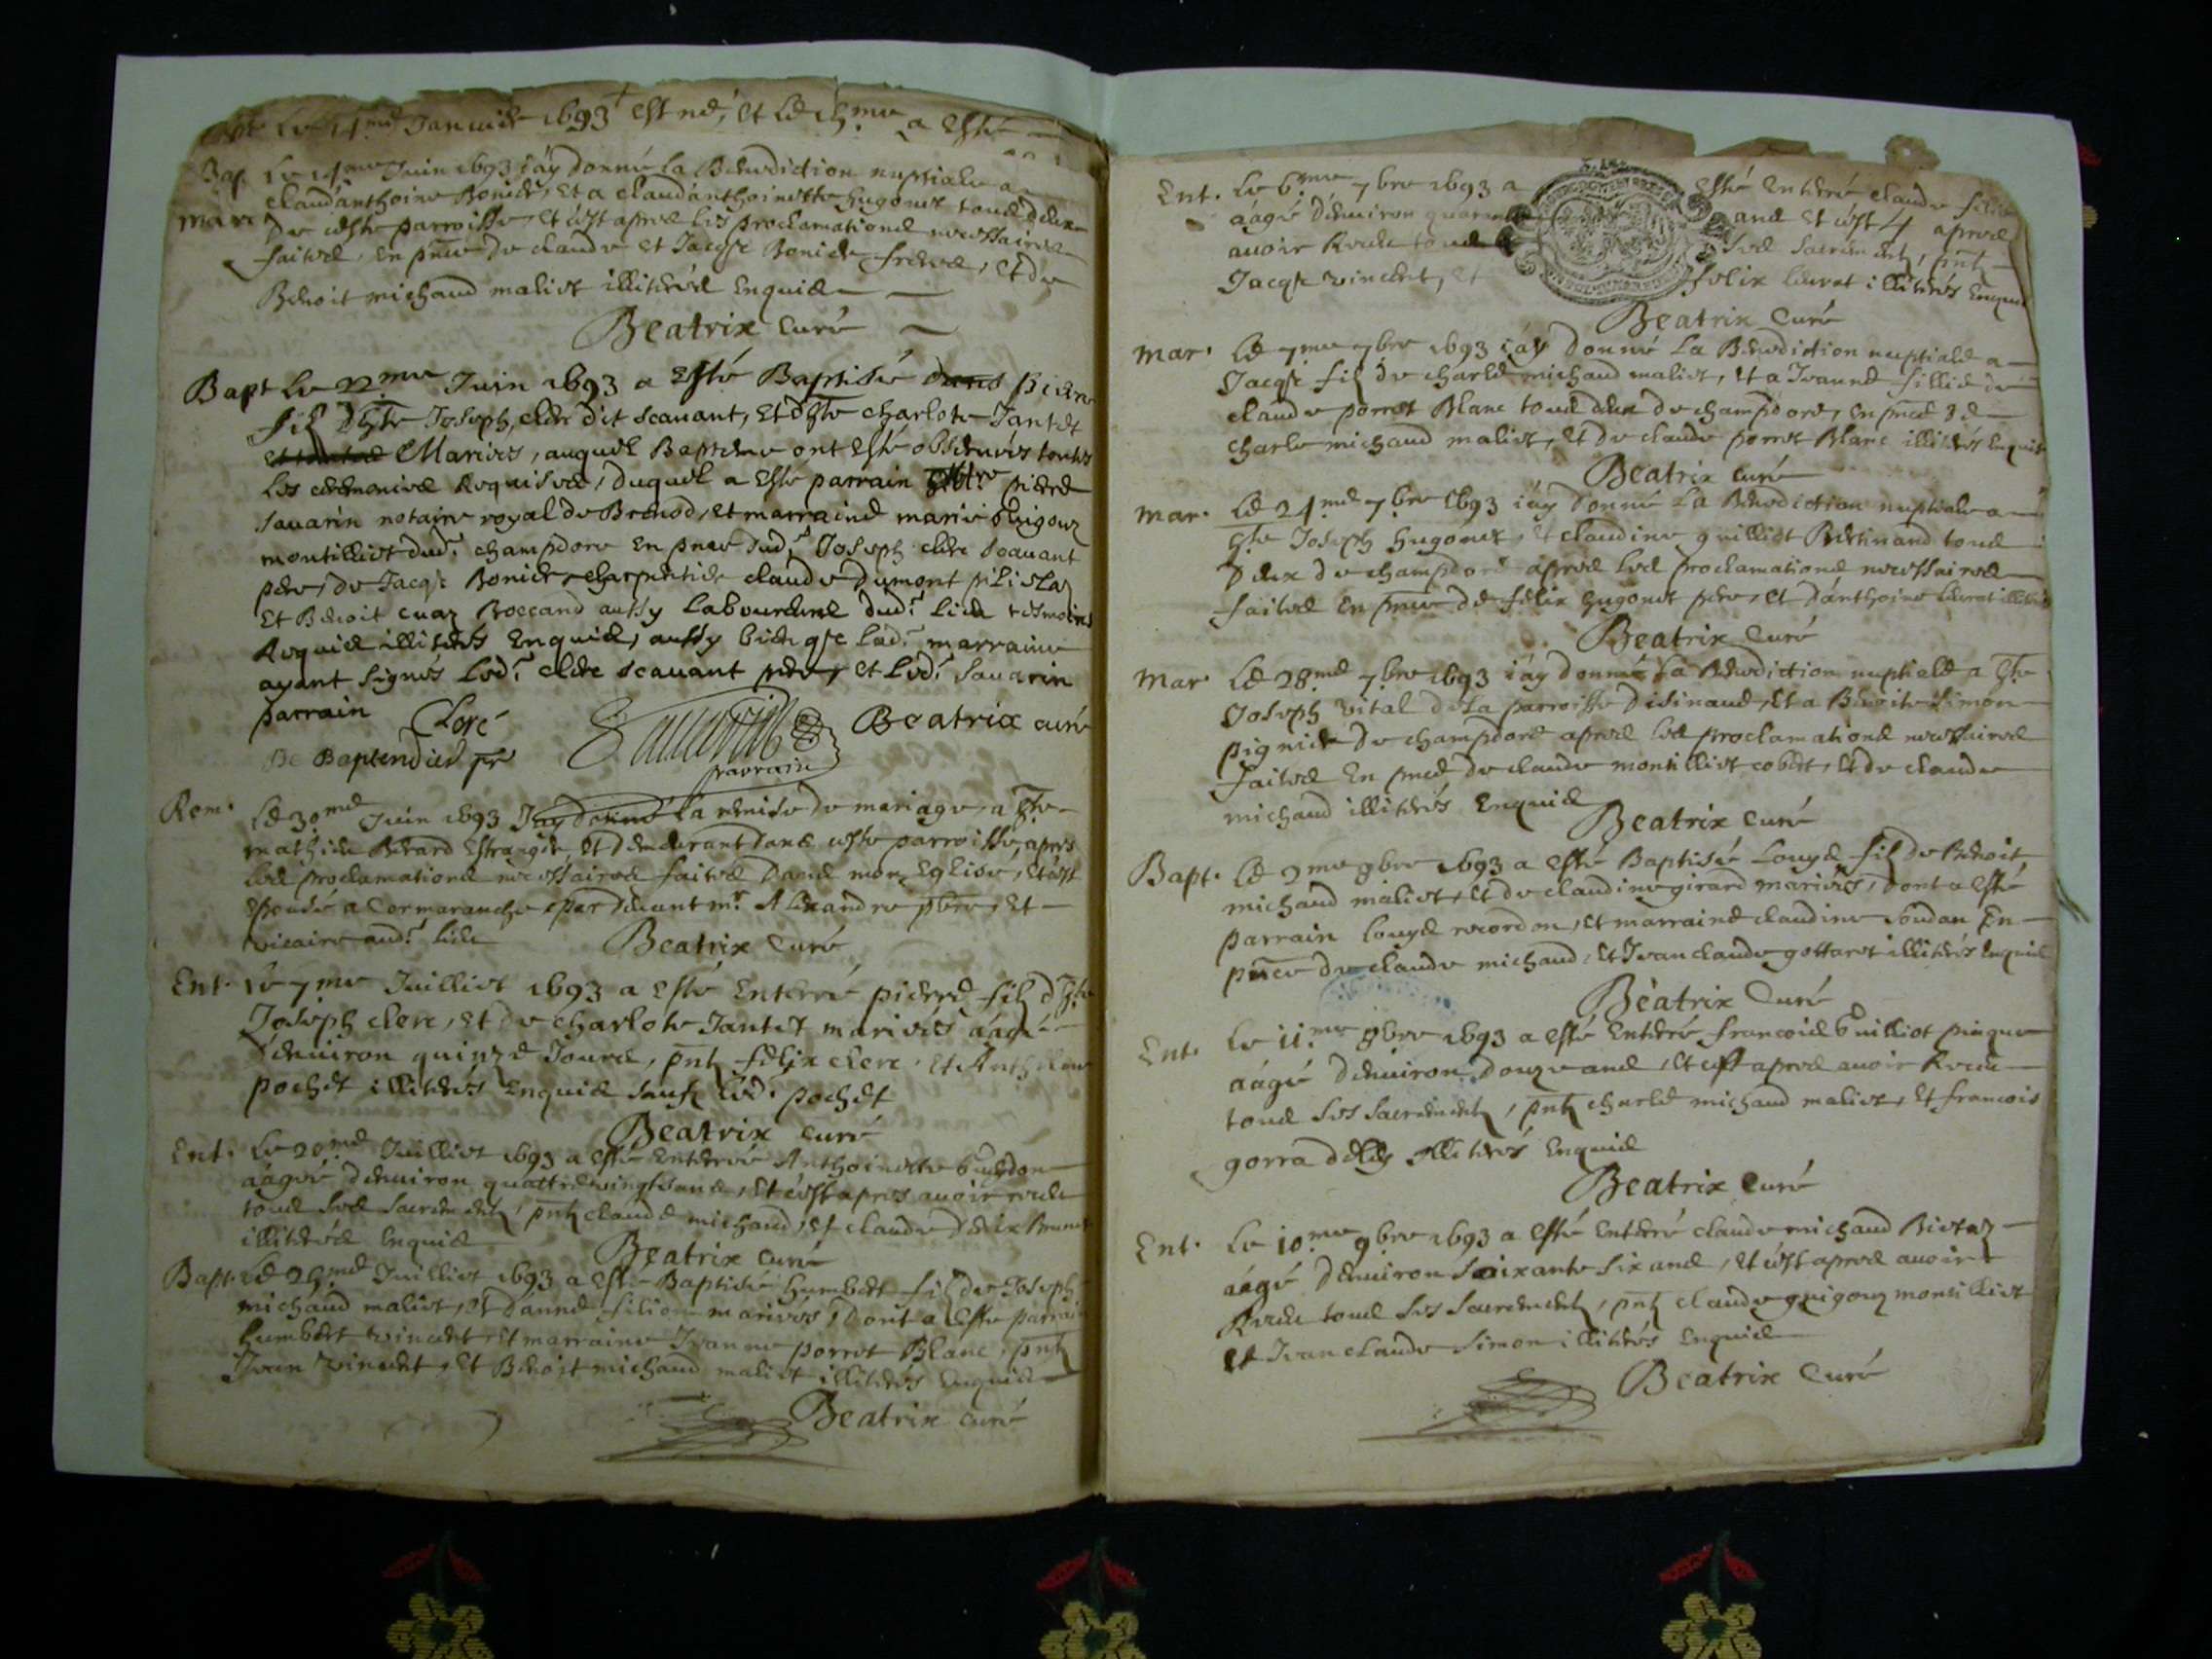 Le 14me Januier 1693 est né, et le 15me a esté
Bap. Le 14me Juin 1693 iay donné la Benediction nuptiale a
mar. claud'anthoine Bonier, et a claud'anthoinette hugonet tous deux
de ceste parroisse, et c'est apres les proclamations necessaires
faites, En pnce de claude et Jacqs Bonier freres, et de
Benoit michaud maliet illiterés Enquis
Beatrix Curé
Bapt Le 22me Juin 1693 a Esté Baptisé Pierre
fils d'hste Joseph, clerc dit scauant, et d'hste charlote Jantet
Mariés, auquel Baptesme ont esté obseruées toutes
les ceremonies Requises, duquel a Esté parrain pierre
sauarin notaire royal de Brenod, et marraine marie guigouz
montilliet dud. champdore En pnce dud. Joseph clerc scauant
pere, de Jacqs Bonier charpentier claude Dumont
Et Benoit cuaz Boccand aussy Laboureurs dud. lieu tesmoins
Requis illiterés Enquis, aussy bien qe lad. marraine
ayant signés Led. clerc scauant pere, et Led. sauarin
parrain Clerc Beatrix curé
De Baptendier pr parrain
Rem. Le 30me Juin 1693 la remise de mariage, a hste
mathieu Berard Estranger, et demeurant dans ceste parroisse, apres
les proclamations necessaires faites dans mon Eglise, et c'est
Espousé a Cormaranche par deuant mr. Alexandre pbre, et
vicaire aud. lieu Beatrix Curé
Ent. Le 7me Juilliet 1693 a esté Enterré pierre fils d'hste
Joseph clerc, et de charlote Jantet mariés aagé
d'enuiron quinze Jours, pnts felix clerc, et Anthelme
pochet illiterés Enquis sauf led. pochet
Beatrix curé
Ent. Le 20me Juilliet 1693 a esté Enterrée Anthoinette
aagée d'enuiron quattre vingts ans, et c'est apres auoir receu
tous ses sacrements, pnts claude michaud, et claude
illiterés Enquis Beatrix curé
Bapt. Le 25me Juilliet 1693 a esté Baptisé humbert fils de Joseph
michaud maliet, et d'anne filion mariés, dont a Esté parrain
humbert vincent, et marraine Jeanne perret Blanc, pnts
Jean vincent, et Benoit michaud maliet illiterés Enquis
Beatrix curé
Ent. Le 6me 7bre 1693 a Esté Enterré claude
aagé d'enuiron ans et c'est apres
auoir Receu tous ses sacrements, pnts
Jacqs vincent, et felix illiterés Enquis
Beatrix Curé
mar. Le 7me 7bre 1693 iay Donné La Benediction nuptiale a
Jacqs fils de charle michaud maliet, et a Jeanne fillie de
claude perret Blanc tous deux de champdore, En pnce de
charle michaud maliet, et de claude perret Blanc illiterés Enquis
Beatrix curé
mar. Le 21me 7bre 1693 iay Donné La Benediction nuptiale a
hste Joseph hugonet, et claudine guilliet Bertinand tous
deux de champdore apres les proclamations necessaires
faites En pnce de felix hugonet pere, et d'anthoine
Beatrix Curé
mar Le 28me 7bre 1693 iay donné La Benediction nuptiale a hste
Joseph vital de la parroisse d'isinaue, et a Benoite simon
pignier de champdore apres les proclamations necessaires
faites En pnce de claude montilliet cobet, et de claude
michaud illiterés Enquis
Beatrix curé
Bapt. Le 2me 8bre 1693 a esté Baptisé Louys fils de Benoit
michaud maliet, et de claudine girard mariés, dont a esté
parrain Louys recordon, et marraine claudine soudan En
pnce de claude michaud, et Jean claude gottaret illiterés Enquis
Beatrix Curé
Ent. Le 11me 8bre 1693 a esté Enterré francois guilliot
aagé d'enuiron douze ans, et c'est apres auoir Receu
tous ses sacrements, pnts charle michaud maliet, et francois
gorra illiterés Enquis
Beatrix Curé
Ent. Le 10me 9bre 1693 a esté Enterré claude michaud
aagé d'enuiron soixante six ans, et c'est apres auoir
Receu tous ses sacrements, pnts claude guigouz montilliet
et Jean claude simon illiterés Enquis
Beatrix Curé